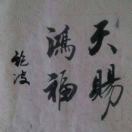 天賜
鴻福
乾波